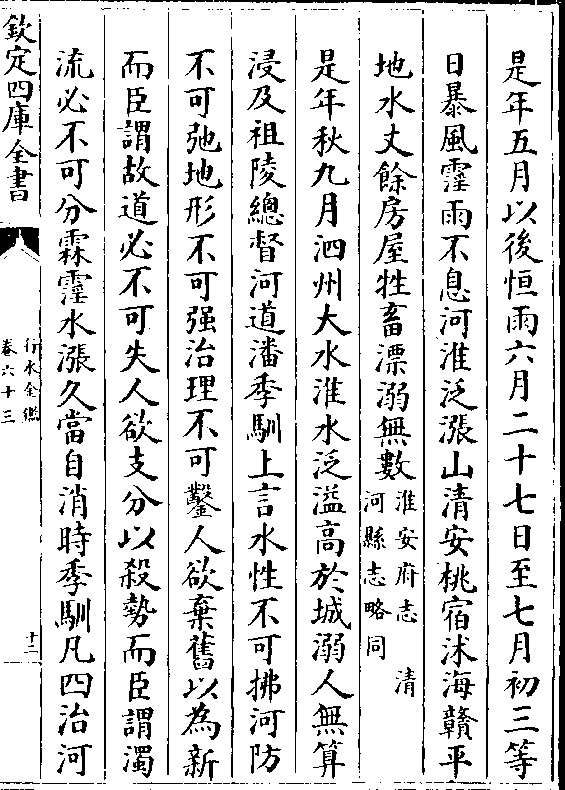 是年五月以後恒雨六月二十七日至七月初三等
日暴風霪雨不息河淮泛漲山清安桃宿沭海贛平
地水丈餘房屋牲畜漂溺無數淮安府志　清
河縣志略同
是年秋九月泗州大水淮水泛溢高於城溺人無算
浸及祖陵總督河道潘季馴上言水性不可拂河防
不可弛地形不可强治理不可鑿人欲棄舊以為新
而臣謂故道必不可失人欲支分以殺勢而臣謂濁
流必不可分霖霪水漲久當自消時季馴凡四治河
欽定四庫全書
行水金鑑
卷六十三
十二